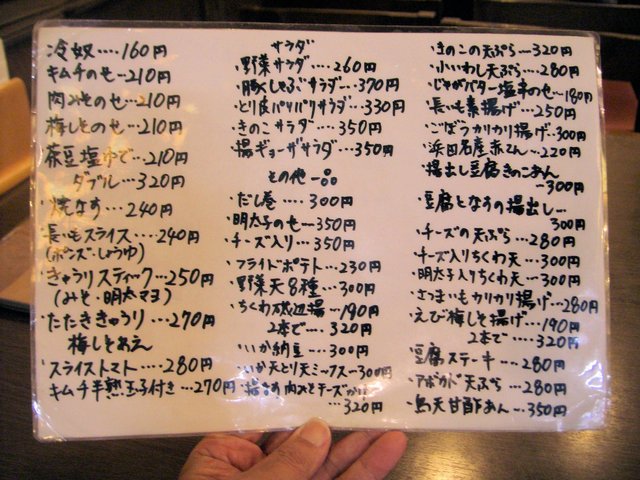 冷奴····160円
キムチのせ··210円
肉みそのせ···210円
梅しそのせ···210円
茶豆塩ゆで··210円
ダブル···320円
焼なす····240円
長いもスライス····240円
(ポンズ·しょうゆ)
きゅうりスティック···250円
(みそ·明太マヨ)
たたききゅうり····270円
梅しそあえ
スライストマト····280円
キムチ半熟玉子付き···270円
サラダ
·野菜サラダ···260円
·豚しゃぶサラダ···370円
·とり皮パリパリサラダ···330円
·きのこサラダ····350円
·揚ギョーザサラダ···350円
その他一品
·だし巻····300円
·明太子のせ···350円
·チーズ入り···350円
·フライドポテト···230円
·野菜天8種···300円
·ちくわ磯辺揚···190円
2本で···320円
·いか納豆···300円
·いか天とり天ミックス···300円
320円
·きのこの天ぷら···320円
·小いわし天ぷら···280円
·じゃがバター塩辛のせ··180円
·長いも素揚げ···250円
·ごぼうカリカリ揚げ···300円
·浜田名産赤てん···220円
·揚出し豆腐きのこあん
···300円
·豆腐となすの揚出し···
300円
·チーズの天ぷら···280円
·チーズ入りちくわ天···300円
·明太子入りちくわ天···300円
·さつまいもカリカリ揚げ···280円
·えび梅しそ揚げ···190円
2本で···320円
·豆腐ステーキ···280円
·アボカド天ぷら···280円
·鳥天甘酢あん···350円